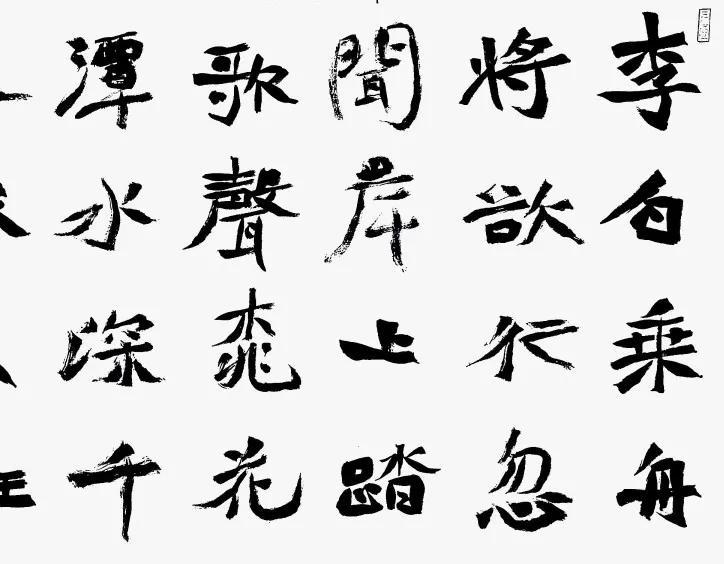 李白乘舟
将欲行忽
聞岸上踏
歌聲桃花
潭水深千